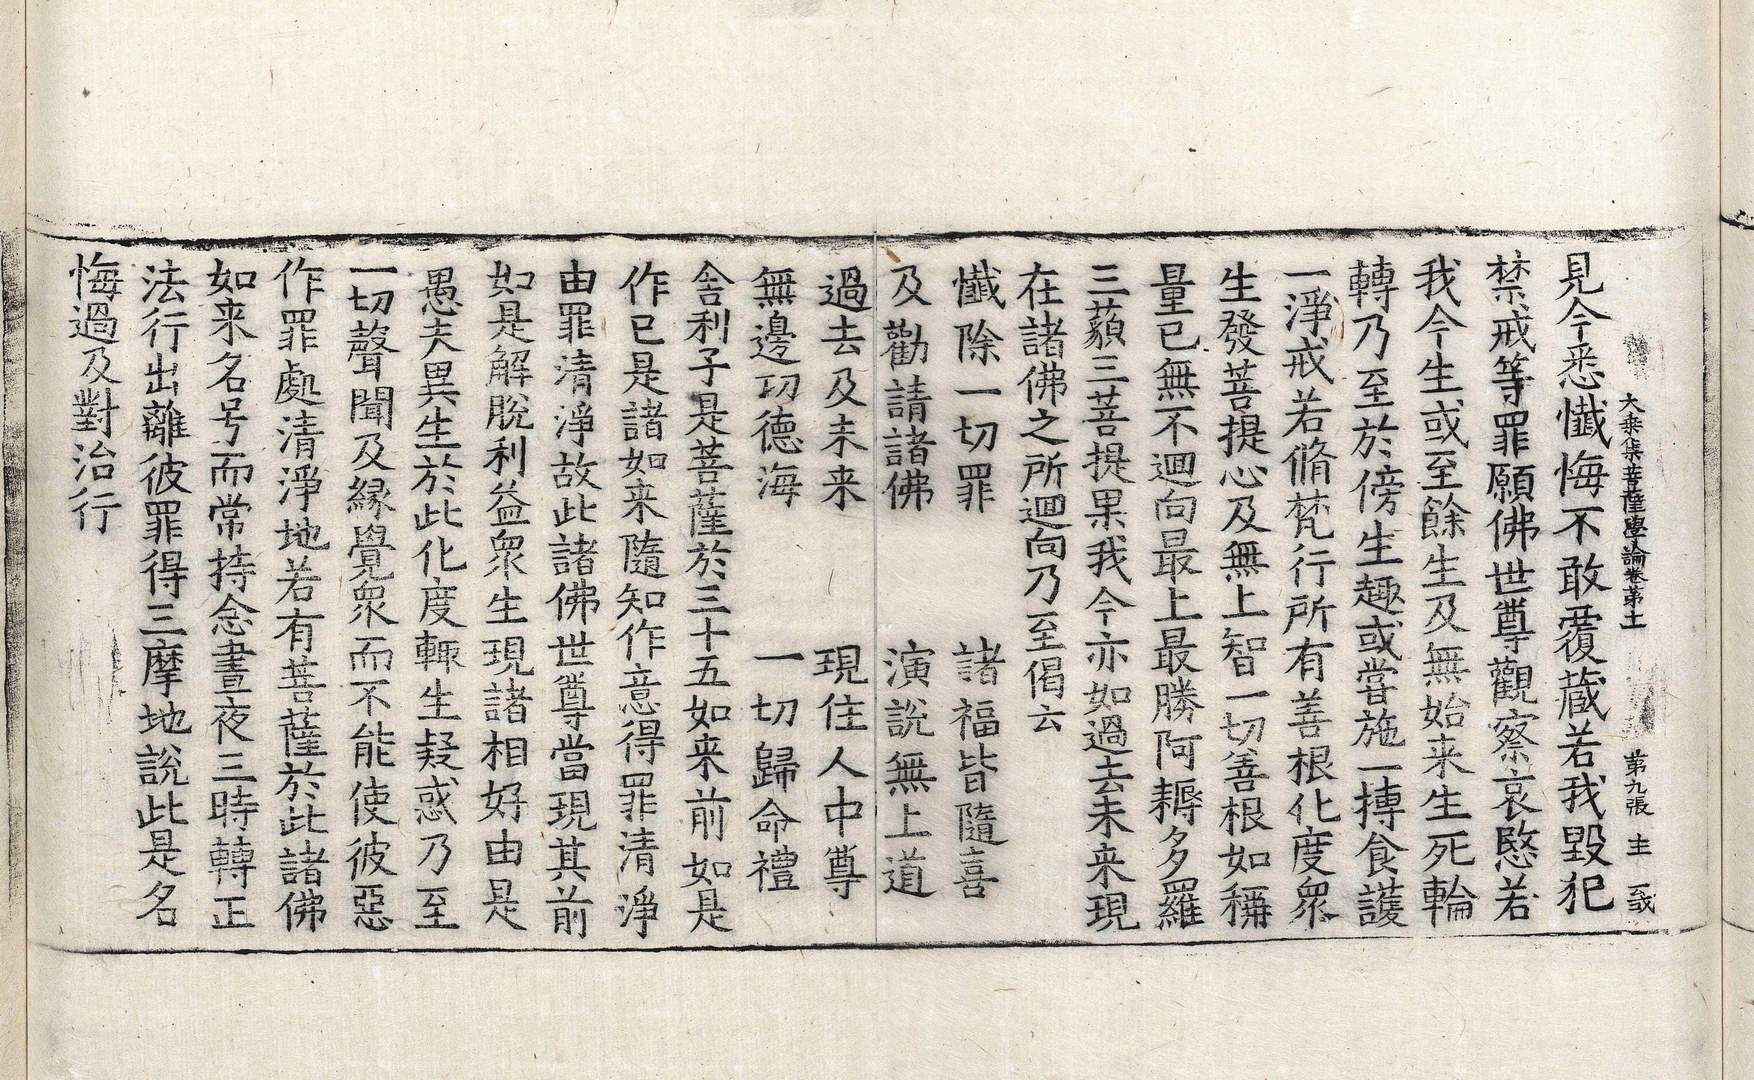 大乗集菩薩學論卷第十一 第九張 主
見今悉懺悔不敢覆蔵若我毀犯
禁戒等罪願佛世尊觀察哀愍若
我今生或至餘生及無始来生死輪
轉乃至於傍生趣或甞施一摶食護
一淨戒若脩梵行所有善根化度衆
生發菩提心及無上智一切善根如稱
量已無不迴向最上最勝阿耨多羅
三藐三菩提果我今亦如過去未来現
在諸佛之所迴向乃至偈云
懺除一切罪 諸福皆隨喜
及勸請諸佛 演說無上道
過去及未来 現住人中尊
無邊功德海 一切歸命禮
舍利子是菩薩於三十五如来前如是
作已是諸如来隨知作意得罪清淨
由罪清淨故此諸佛世尊當現其前
如是解脫利益衆生現諸相好由是
愚夫異生於此化度輙生疑惑乃至
一切聲聞及緣覺衆而不能使彼惡
作罪處清淨地若有菩薩於此諸佛
如来名号而常持念晝夜三時轉正
法行出離彼罪得三摩地說此是名
悔過及對治行